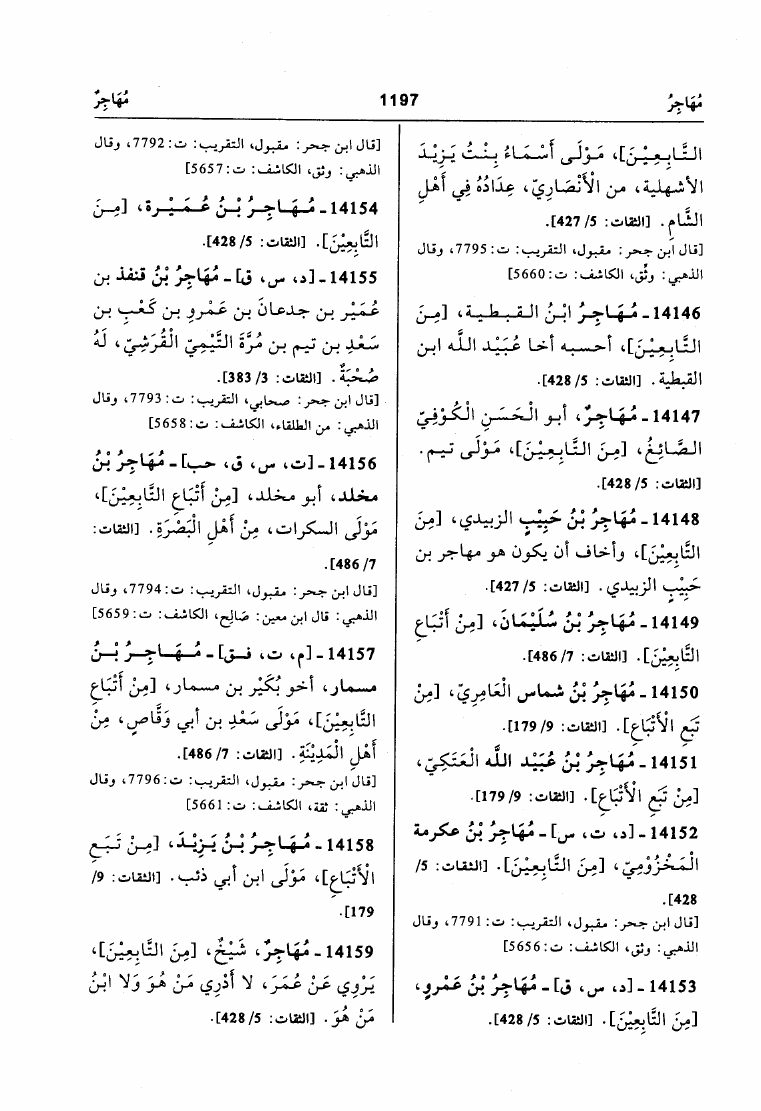 مُهَاجِرُ 1197 مُهَاجِرٌ
التَّابِعِيْنَ]، مَوْلَى أَسْمَاءَ بِنْتِ يَزِيْدَ
الأشهلية، من الأَنْصَارِيّ، عِدَادُهُ فِي أَهْلِ
الشَّام. [الثقات: 5/ 427].
[قال ابن حجر: مقبول، التقريب: ت: 7795، وقال
الذهبي: وثّق، الكاشف: ت: 5660]
14146 - مُهَاجِرُ ابْنُ القبطية، [مِنَ
التَّابِعِيْنَ]، أحسبه أخا عُبَيْد الله ابن
القبطية. [الثقات: 5/ 428].
14147 - مُهَاجِرٌ، أبو الْحَسَنِ الْكُوْفِيّ
الصَّائِغُ، [مِنَ التَّابِعِيْنَ]، مَوْلَى تيم.
[الثقات: 5/ 428].
14148 - مُهَاجِرُ بْنُ حَبِيْبٍ الزبيدي، [مِنَ
التَّابِعِيْنَ]، وأخاف أن يكون هو مهاجر بن
حَبِيْبٍ الزبيدي. [الثقات: 5/ 427].
14149 - مُهَاجِرُ بْنُ سُلَيْمَانَ، [مِنْ أَتْبَاعِ
التَّابِعِيْنَ]. [الثقات: 7/ 486].
14150 - مُهَاجِرُ بْنُ شماس الْعَامِرِيّ، [مِنْ
تَبَعِ الأَتْبَاعِ]. [الثقات: 9/ 179].
14151 - مُهَاجِرُ بْنُ عُبَيْدِ اللَّه الْعَتَكِيّ،
[مِنْ تَبَعِ الأَتْبَاعِ]. [الثقات: 9/ 179].
14152 - [د، ت، س] - مُهَاجِرُ بْنُ عكرمة
الْمَخْزُوْمِيّ، [مِنَ التَّابِعِيْنَ]. [الثقات: 5/
428].
[قال ابن حجر: مقبول، التقريب: ت: 7791، وقال
الذهبي: وثق، الكاشف: ت: 5656]
14153 - [د، س، ق] - مُهَاجِرُ بْنُ عَمْرٍو،
[مِنَ التَّابِعِيْنَ]. [الثقات: 5/ 428].
[قال ابن حجر: مقبول، التقريب: ت: 7792، وقال
الذهبي: وثق، الكاشف: ت: 5657]
14154 - مُهَاجِرُ بْنُ عُمَيْرة، [مِنَ
التَّابِعِيْنَ]. [الثقات: 5/ 428].
14155 - [د، س، ق] - مُهَاجِرُ بْنُ قنفذ بن
عُمَيْرِ بن جدعان بن عَمْرِو بن كَعْبِ بن
سَعْدِ بن تيم بن مُرَّةَ التَّيْمِيّ الْقُرَشِيّ، لَهُ
صُحْبَةٌ. [الثقات: 3/ 383].
[قال ابن حجر: صحابي، التقريب: ت: 7793، وقال
الذهبي: من الطلقاء، الكاشف: ت: 5658]
14156 - [ت، س، ق، حب] - مُهَاجِرُ بْنُ
مخلد، أبو مخلد، [مِنْ أَتْبَاعِ التَّابِعِيْنَ]،
مَوْلَى السكرات، مِنْ أَهْلِ الْبَصْرَةِ. [الثقات:
7/ 486].
[قال ابن حجر: مقبول، التقريب: ت: 7794، وقال
الذهبي: قال ابن معين: صَالِح، الكاشف: ت: 5659]
14157 - [م، ت، فق] - مُهَاجِرُ بْنُ
مسمار، أخو بُكَيْرِ بن مسمار، [مِنْ أَتْبَاعِ
التَّابِعِيْنَ]، مَوْلَى سَعْدِ بن أبي وَقَّاصٍ، مِنْ
أَهْلِ الْمَدِيْنَةِ. [الثقات: 7/ 486].
[قال ابن حجر: مقبول، التقريب: ت: 7796، وقال
الذهبي: ثقة، الكاشف: ت: 5661]
14158 - مُهَاجِرُ بْنُ يَزِيْدَ، [مِنْ تَبَعِ
الأَتْبَاعِ]، مَوْلَى ابن أبي ذئب. [الثقات: 9/
179].
14159 - مُهَاجِرٌ، شَيْخٌ، [مِنَ التَّابِعِيْنَ]،
يَرْوِي عَنْ عُمَرَ، لا أَدْرِي مَنْ هُوَ وَلا ابْنُ
مَنْ هُوَ. [الثقات: 5/ 428].